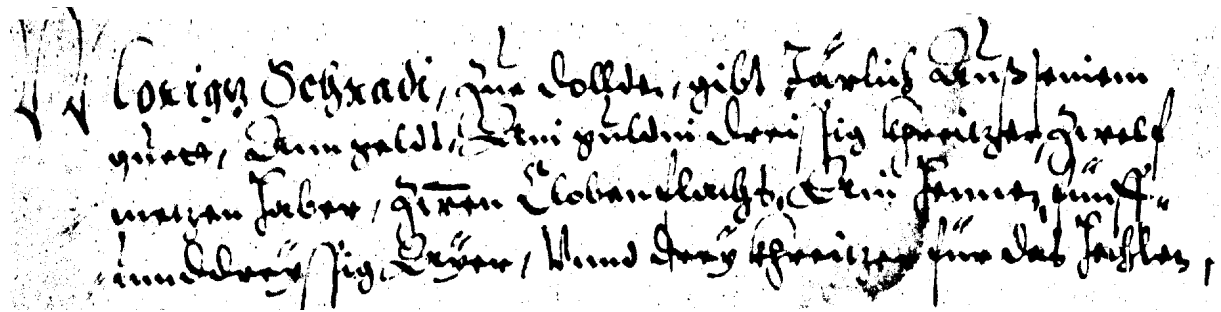 Morigz Schradi, zue dollden, gibt Järlich Auß seinem
guett, Ann geldt, Ain guldin dreissig khreitzer, zwelf
metzen haber, zwen Clobenflachs, Ain hennen, fünff-
unnddreyssig Ayer, Vnnd drey khreitzer für das hechlen,